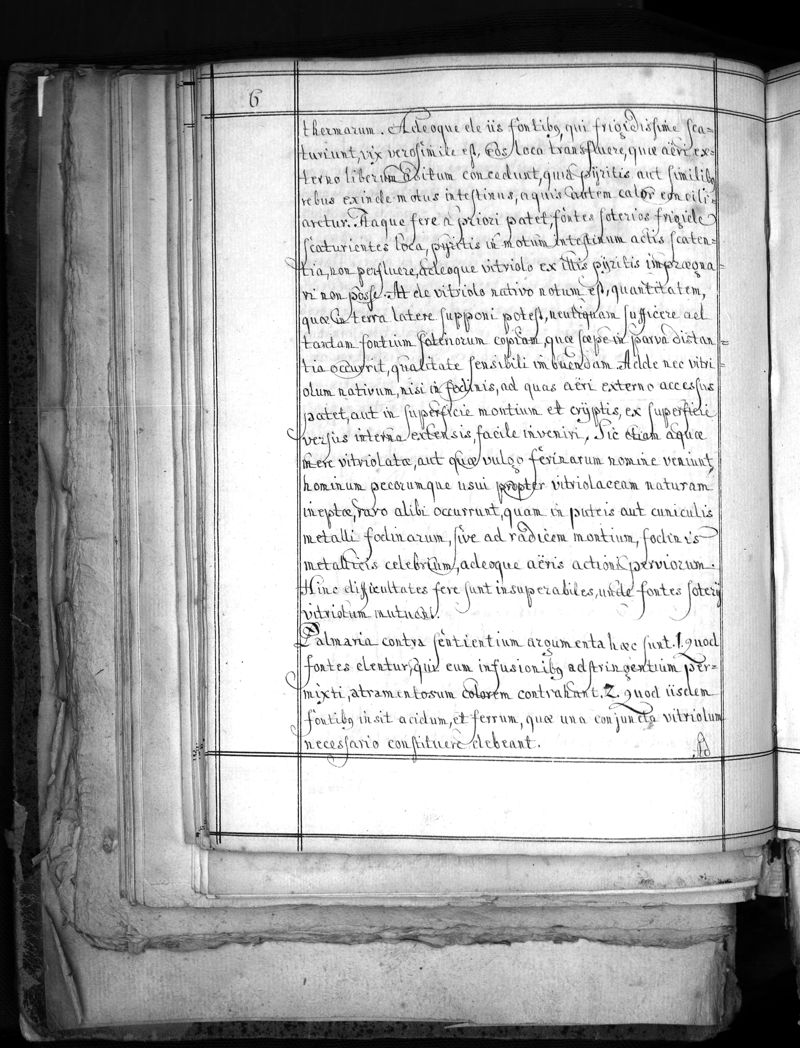 6
thermarum. Adeoque de iis fontibꝫ, qui frigidissime sca=
turiunt, vix verosimile est, Eos loca transfluere, quæ aëri ex=
terno liberum aditum concedunt, quia pÿritis aut similibꝫ
rebus exinde motus intestinus, aquis autem calor concili=
aretur. Itaque fere a priori patet, fontes soterios frigide
scaturientes loca, pÿritis in motum intestinum actis scaten=
tia, non perfluere, adeoque vitriolo ex illis pÿritis imprægna
ri non posse. At de vitriolo nativo notum est, quantitatem,
quæ in terra latere supponi potest, neutiquam sufficere ad
tandam fontium soteriorum copiam, quæ sæpe in parva distan=
tia occurrit, qualitate sensibili imbuendam. Adde nec vitri=
olum nativum, nisi in fodinis, ad quas aëri externo accessus
patet, aut in superficie montium et crÿptis, ex superficie
versus interna extensis, facile inveniri, Sic etiam aquæ
mere vitriolatæ, aut quæ vulgo ferinarum nomine veniunt,
hominum pecorumque usui propter vitriolaceam naturam
ineptæ, raro alibi occurrunt, quam in puteis aut cuniculis
metalli fodinarum, sive ad radicem montium, fodinis
metallicis celebrium, adeoque aëris actioni perviorum.
Hinc difficultates fere sunt insuperabiles, unde fontes soterÿ
vitriolum mutuent.
Palmaria contra sentientium argumenta hæc sunt. 1. quod
fontes dentur, qui cum infusionibꝫ adstringentium per=
mixti, atramentosum colorem contrahant. 2. quod iisdem
fontibꝫ insit acidum, et ferrum, quæ una conjuncta vitriolum
necessario constituere debeant.
Ad